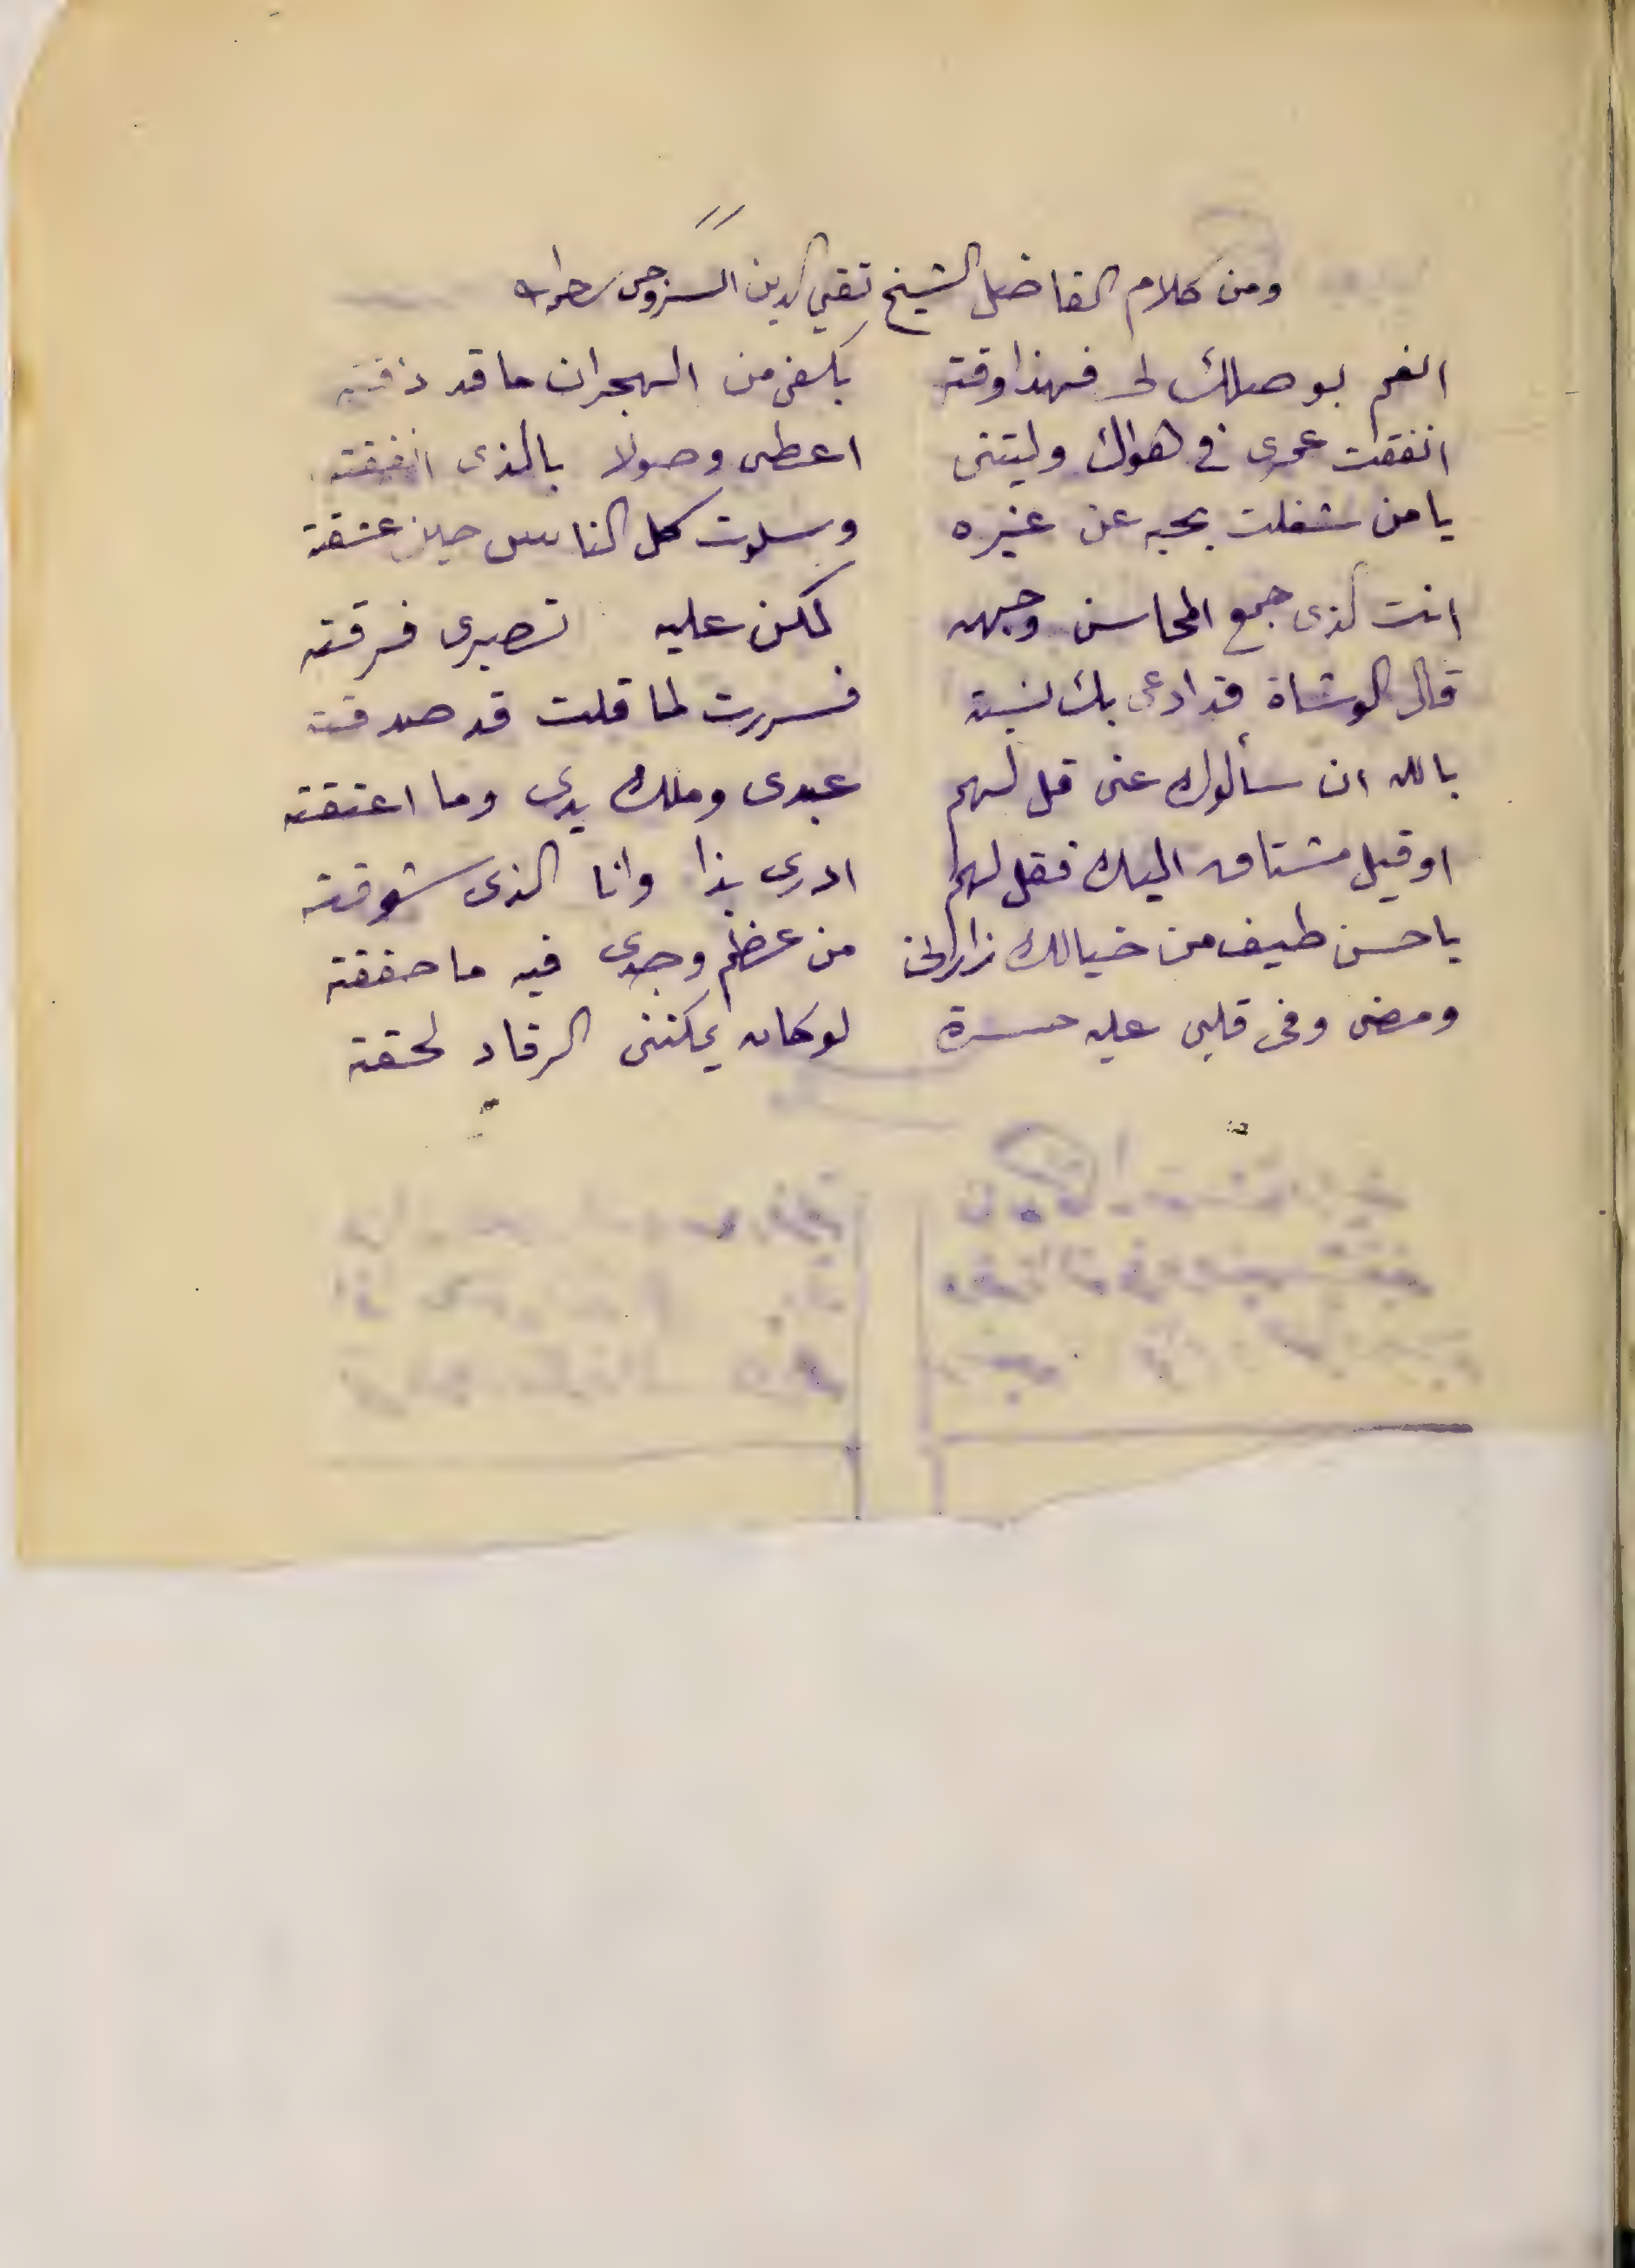 ومن كلام الفاضل الشيخ تقي الدين السروجي
انعم بوصلك لى فهذا وقته يكفى من الهجران ما قد ذقته
انفقت عمرى في هواك وليتنى اعطى وصولا بالذى انفقته
يا من شغلت بحبه عن غيره وسلوت كل الناس حين عشقته
انت الذى جمع المحاسن وجهه لكن عليه تصبرى فرقته
قال الوشاة قد ادعى بك نسبته فسررت لما قلت قد صدقته
بالله ان سألوك عنى قل لهم عبدى وملك يدى وما اعتقته
او قيل مشتاق اليك فقل لهم ادرى بذا وانا الذى شوقته
يا حسن طيف من خيالك زارنى من عظم وجدى فيه ما حققته
ومضى وفى قلبى عليه حسرة لو كان يمكننى الرقاد لحقته